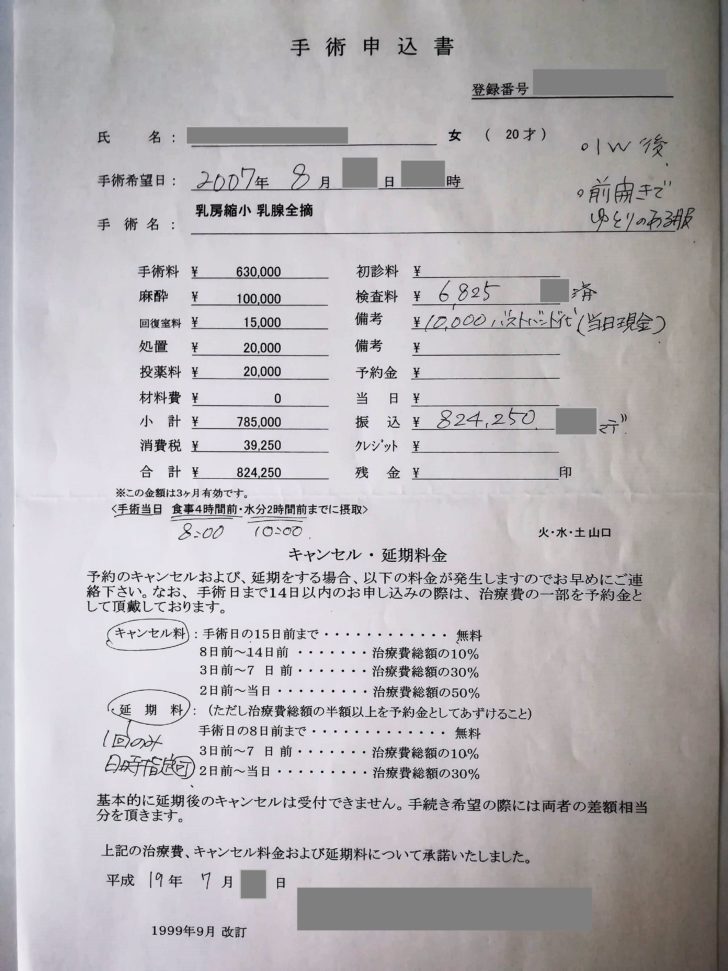 手術申込書
登録番号
氏 名： 女 （ 20才）
○1W後
手術希望日： 2007年 8月 日 時
○前開きで
ゆとりのある服
手 術 名： 乳房縮小 乳腺全摘
手術料 ¥ 630,000 初診料 ¥
麻酔 ¥ 100,000 検査料 ¥ 6,825 済
回復室料 ¥ 15,000 備考 ¥10,000 バストバンド代(当日現金)
処置 ¥ 20,000 備考 ¥
投薬料 ¥ 20,000 予約金 ¥
材料費 ¥ 0 当 日 ¥
小 計 ¥ 785,000 振 込 ¥ 824,250 マデ
消費税 ¥ 39,250 クレジット ¥
合 計 ¥ 824,250 残 金 ¥ 印
※この金額は3ヶ月有効です。
<手術当日 食事4時間前・水分2時間前までに摂取>
8:00 10:00
火・水・土 山口
キャンセル・延期料金
予約のキャンセルおよび、延期をする場合、以下の料金が発生しますのでお早めにご連
絡下さい。なお、手術日まで14日以内のお申し込みの際は、治療費の一部を予約金と
して頂戴しております。
キャンセル料：手術日の15日前まで・・・・・・・・・・・・ 無料
8日前～14日前 ・・・・・・・治療費総額の10%
3日前～7 日 前・・・・・・・治療費総額の30%
2日前～当日・・・・・・・・・治療費総額の50%
延 期 料 ：（ただし治療費総額の半額以上を予約金としてあずけること）
手術日の8日前まで・・・・・・・・・・・・・ 無料
1回のみ
3日前～7 日 前・・・・・・・治療費総額の10%
日時指定可
2日前～当日・・・・・・・・・治療費総額の30%
基本的に延期後のキャンセルは受付できません。手続き希望の際には両者の差額相当
分を頂きます。
上記の治療費、キャンセル料金および延期料について承諾いたしました。
平成 19年 7月 日
1999年9月 改訂